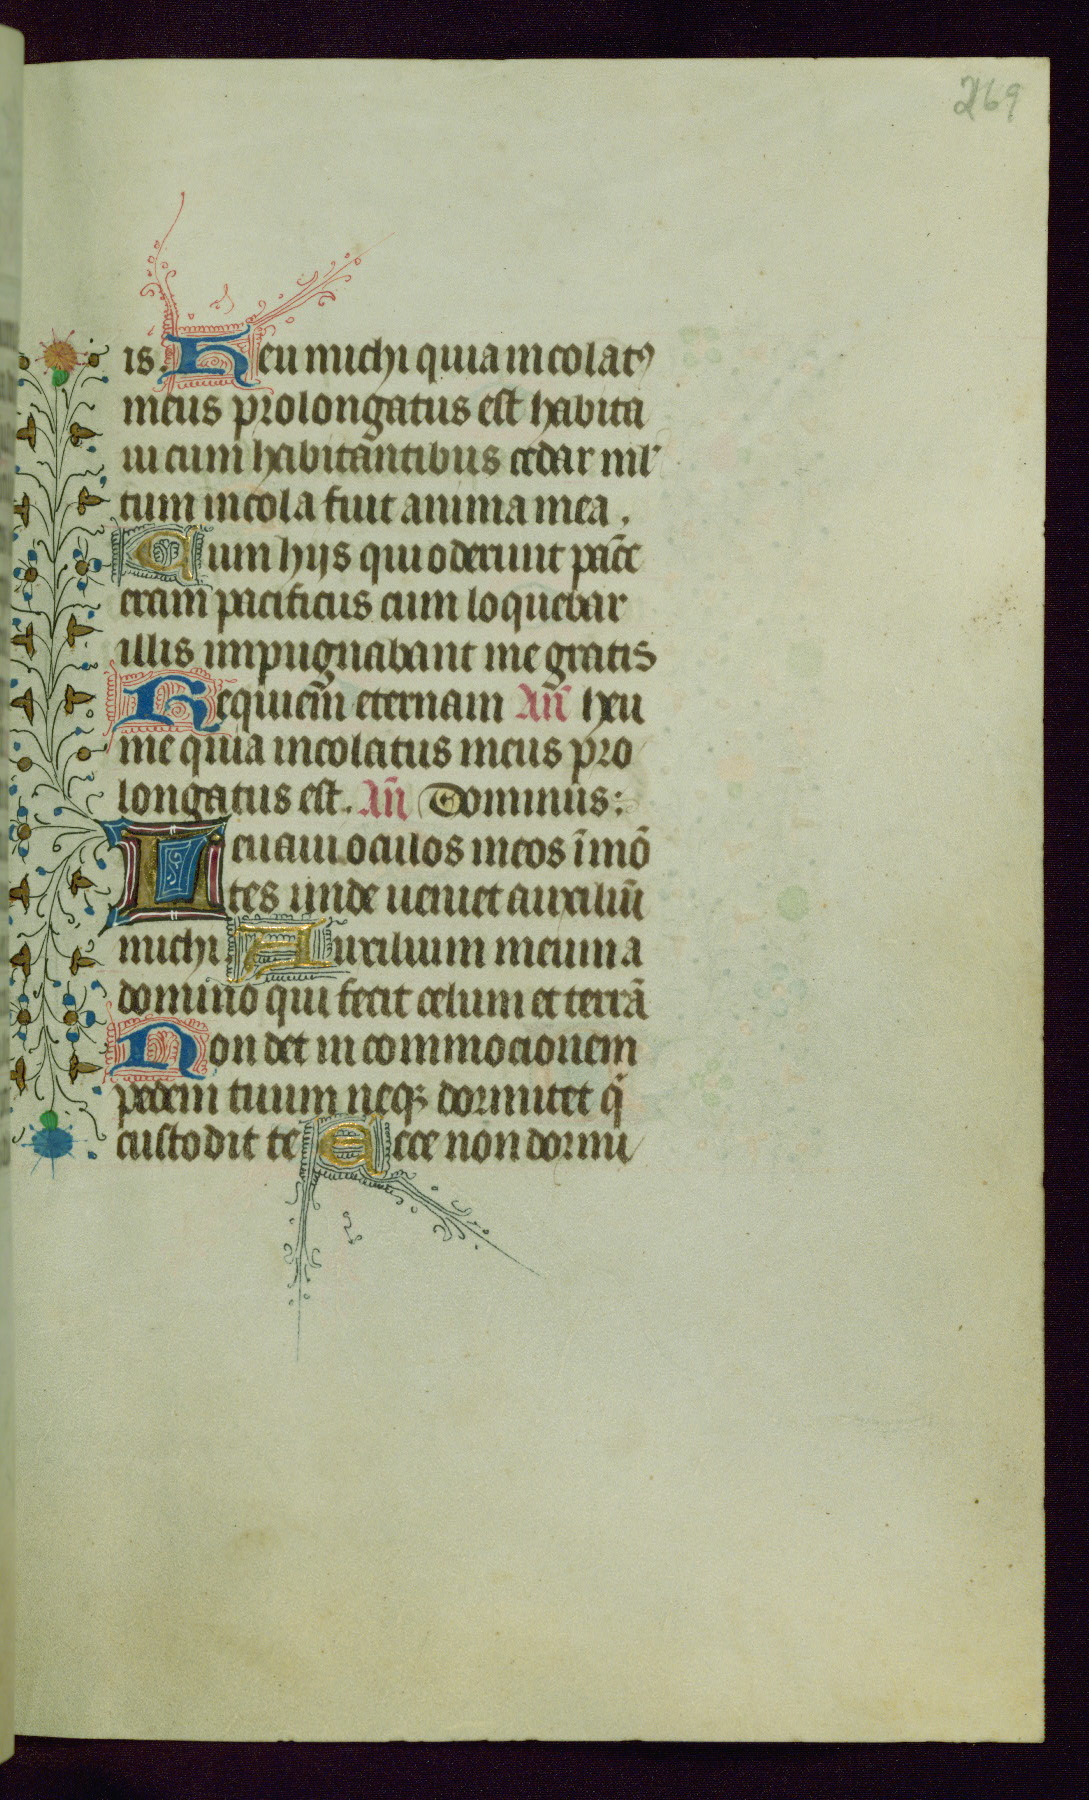 269
is. Heu michi quia incolatꝰ
meus prolongatus est habita
ui cum habitantibus cedar ml'
tum incola fuit anima mea.
Cum hijs qui oderunt pac̄e
eram pacificus cum loquebar
illis impugnabant me gratis
Requiem̄ eternam An̄ heu
me quia incolatus meus pro
longatus est. An̄ Dominus:
Leuaui oculos meos ī mō
tes unde ueniet auxiliū
michi. Auxilium meum a
domino qui fecit celum et terrā
Non det in commocionem
pedem tuum neqꝫ dormitet q̇
custodit te Ecce non dormi